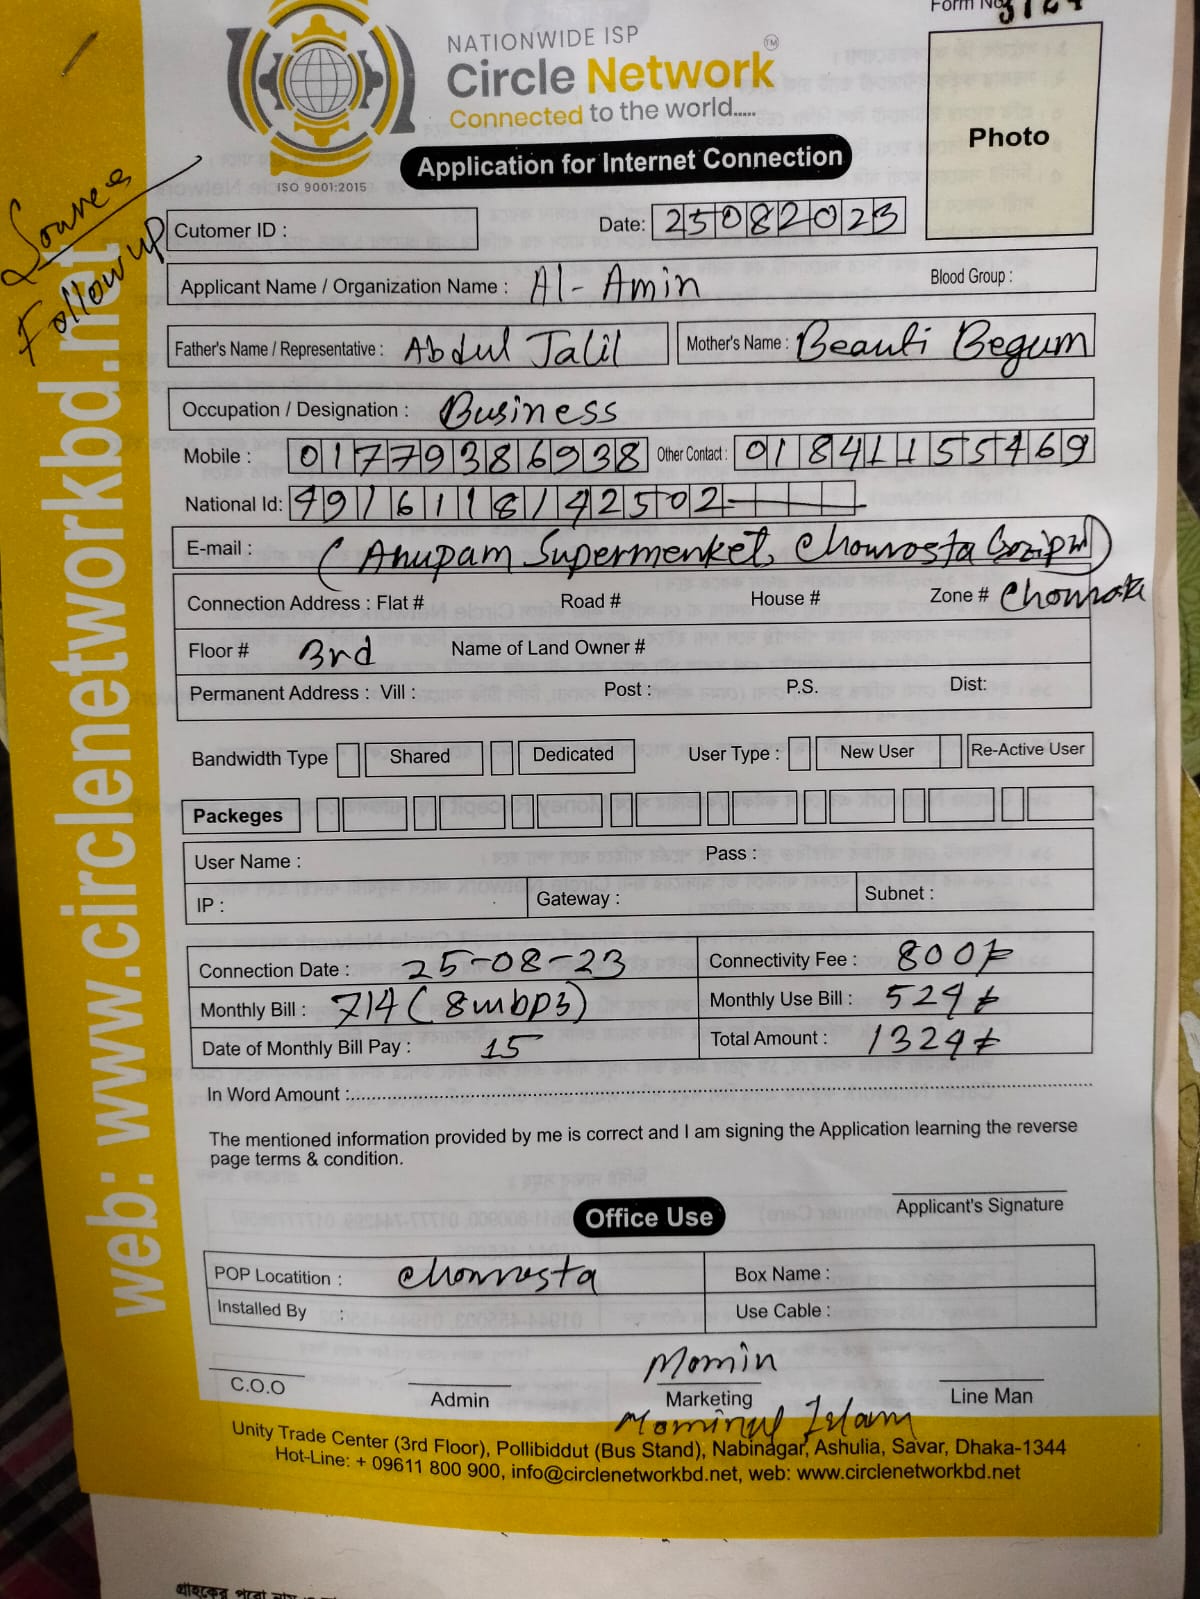 Form No
NATIONWIDE ISP
Circle Network TM
Connected to the world.....
ISO 9001:2015
Application for Internet Connection
Photo
Follow up
Cutomer ID :
Date: 25082023
Applicant Name / Organization Name : Al-Amin Blood Group :
Father's Name / Representative : Abdul Jalil Mother's Name : Beauti Begum
Occupation / Designation : Business
Mobile : 01779386938 Other Contact : 01841155469
National Id: 4916118142502
E-mail : (Anupam Supermenket, Chowrosta Gazipur)
Connection Address : Flat # Road # House # Zone # Chowrasta
Floor # 3rd Name of Land Owner #
Permanent Address : Vill : Post : P.S. Dist:
Bandwidth Type Shared Dedicated User Type : New User Re-Active User
Packeges
User Name : Pass :
IP : Gateway : Subnet :
Connection Date : 25-08-23 Connectivity Fee : 800/-
Monthly Bill : 714 (8mbps) Monthly Use Bill : 524/-
Date of Monthly Bill Pay : 15 Total Amount : 1324/-
In Word Amount :
The mentioned information provided by me is correct and I am signing the Application learning the reverse
page terms & condition.
Applicant's Signature
Office Use
POP Locatition : Chowrosta Box Name :
Installed By : Use Cable :
Momin
C.O.O Admin Marketing Line Man
Mominul Islam
Unity Trade Center (3rd Floor), Pollibiddut (Bus Stand), Nabinagar, Ashulia, Savar, Dhaka-1344
Hot-Line: + 09611 800 900, info@circlenetworkbd.net, web: www.circlenetworkbd.net
web: www.circlenetworkbd.net